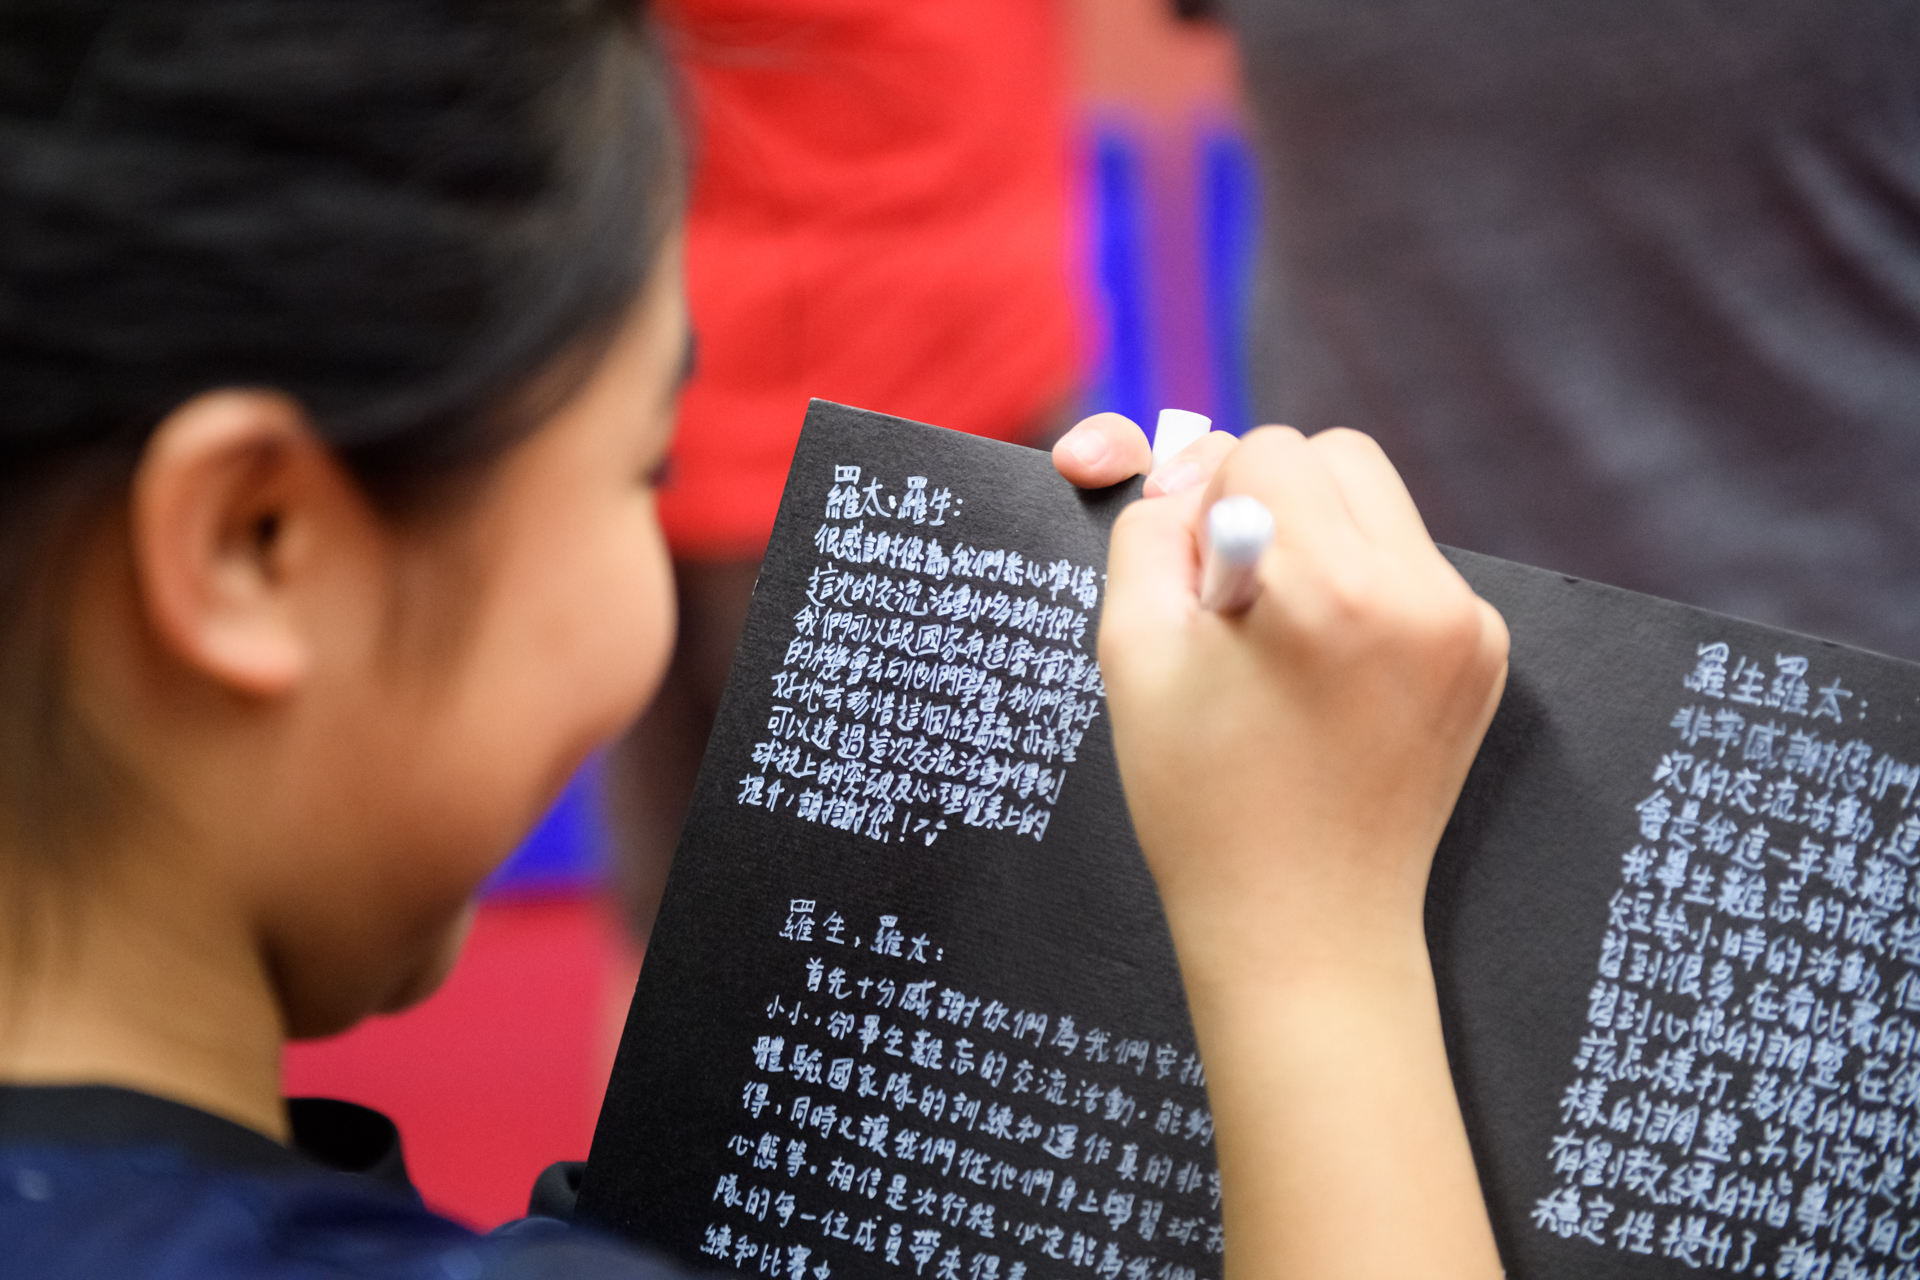 羅太、羅生：
很感謝您為我們悉心準備
這次的交流活動，多謝您令
我們可以跟國家有這麼千載難
的機會去向他們學習，我們會好
好地去珍惜這個經驗，亦希望
可以透過這次交流活動得到
球技上的突破及心理質素上的
提升，謝謝您！
羅生，羅太：
首先十分感謝你們為我們安排
小小，卻畢生難忘的交流活動。能夠
體驗國家隊的訓練和運作真的非常
得，同時又讓我們從他們身上學習球
心態等。相信是次行程，必定能為我們
隊的每一位成員帶來得
練和比賽
羅生羅太：
非常感謝您們
次的交流活動，這
會是我這一年最難
我畢生難忘的旅程
短絀小時的活動，但
習到很多，在看比賽的
習到心態的調整，在
該怎樣打，落後的時
樣的調整。另外就是
有劉教練的指導後自己
穩定性提升了。謝謝